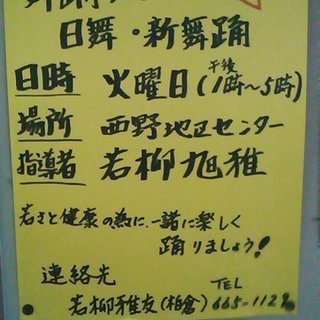 日舞・新舞踊
日時 火曜日(午後1時~5時)
場所 西野地区センター
指導者 若柳旭雅
若さと健康の為に、一諸に楽しく
踊りましょう!
連絡先
若柳雅友(柏倉) TEL 665-1129